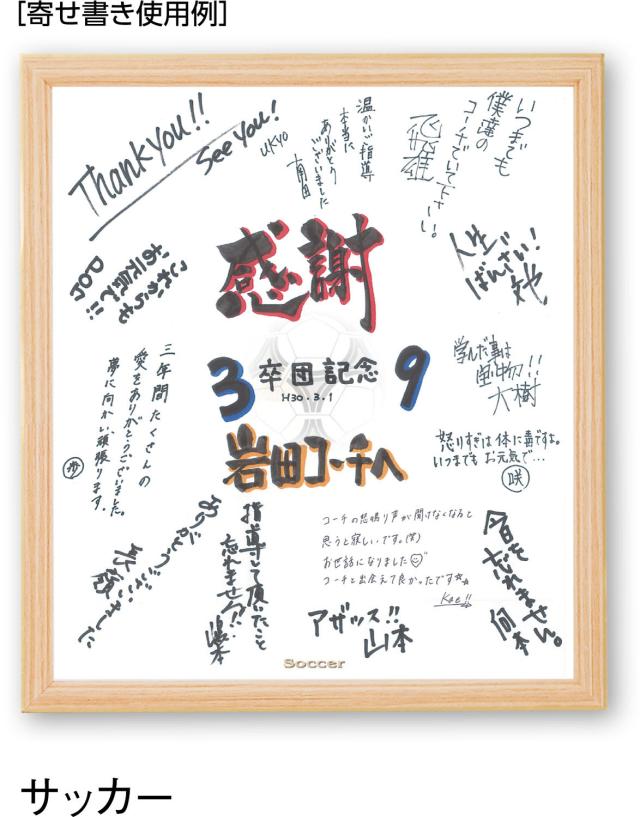 [寄せ書き使用例]
Thank you!!
See you!
UKYO
温かいご指導
本当に
ありがとう
ございました
南田
いつまでも
僕達の
コーチでいて下さい。
飛雄
感謝
人生
ばんざい!
お元気で!!
三年間たくさんの
愛をありがとうございました。
夢に向かい頑張ります。
3 卒団記念 9
H30.3.1
学んだ事は
宝物!!
大樹
怒りすぎは体に毒ですよ。
いつまでもお元気で…
咲
岩田コーチへ
ありがとうございました
指導して頂いたこと
忘れません!!
コーチの怒鳴り声が聞けなくなると
思うと寂しいです。(笑)
お世話になりました
コーチと出会えて良かったです☆
Kae!!
今日を
忘れません。
アザッス!!
山本
Soccer
サッカー